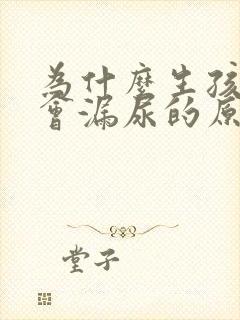 為什麼生孩
會漏尿的原
堂子